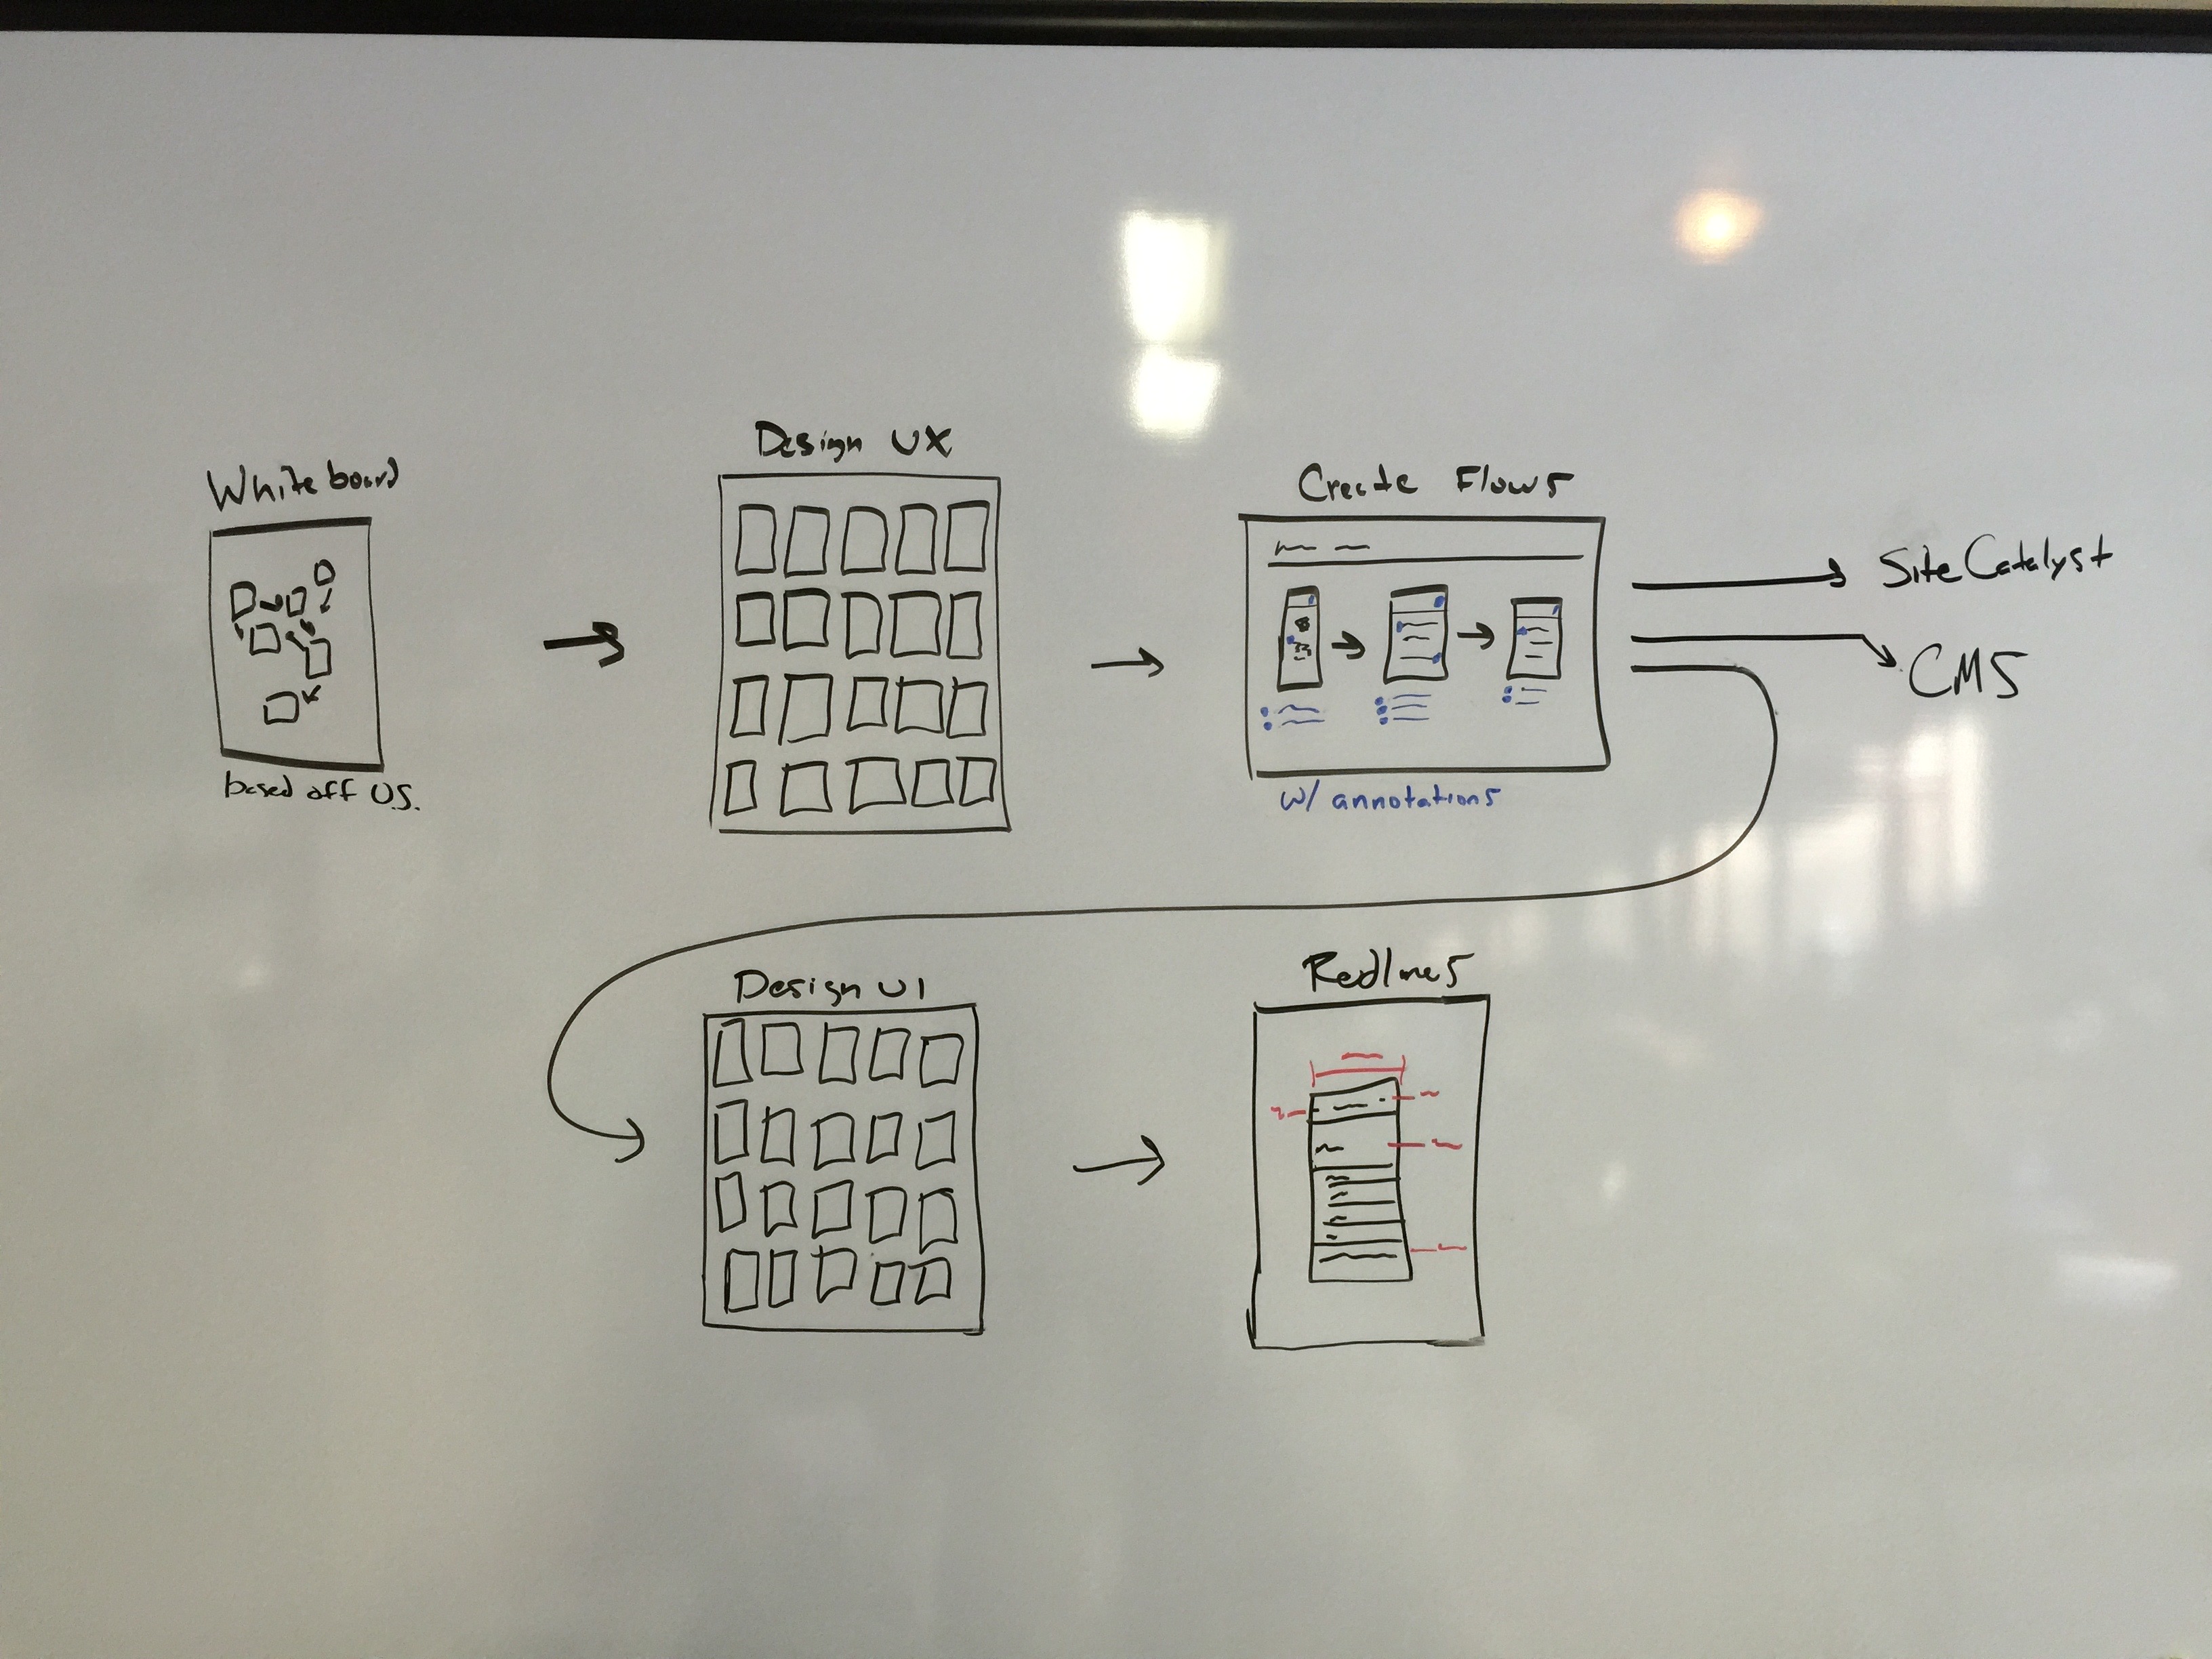 Whiteboard
based off U.S.
Design UX
Create Flows
w/ annotations
SiteCatalyst
CMS
Design UI
Redlines